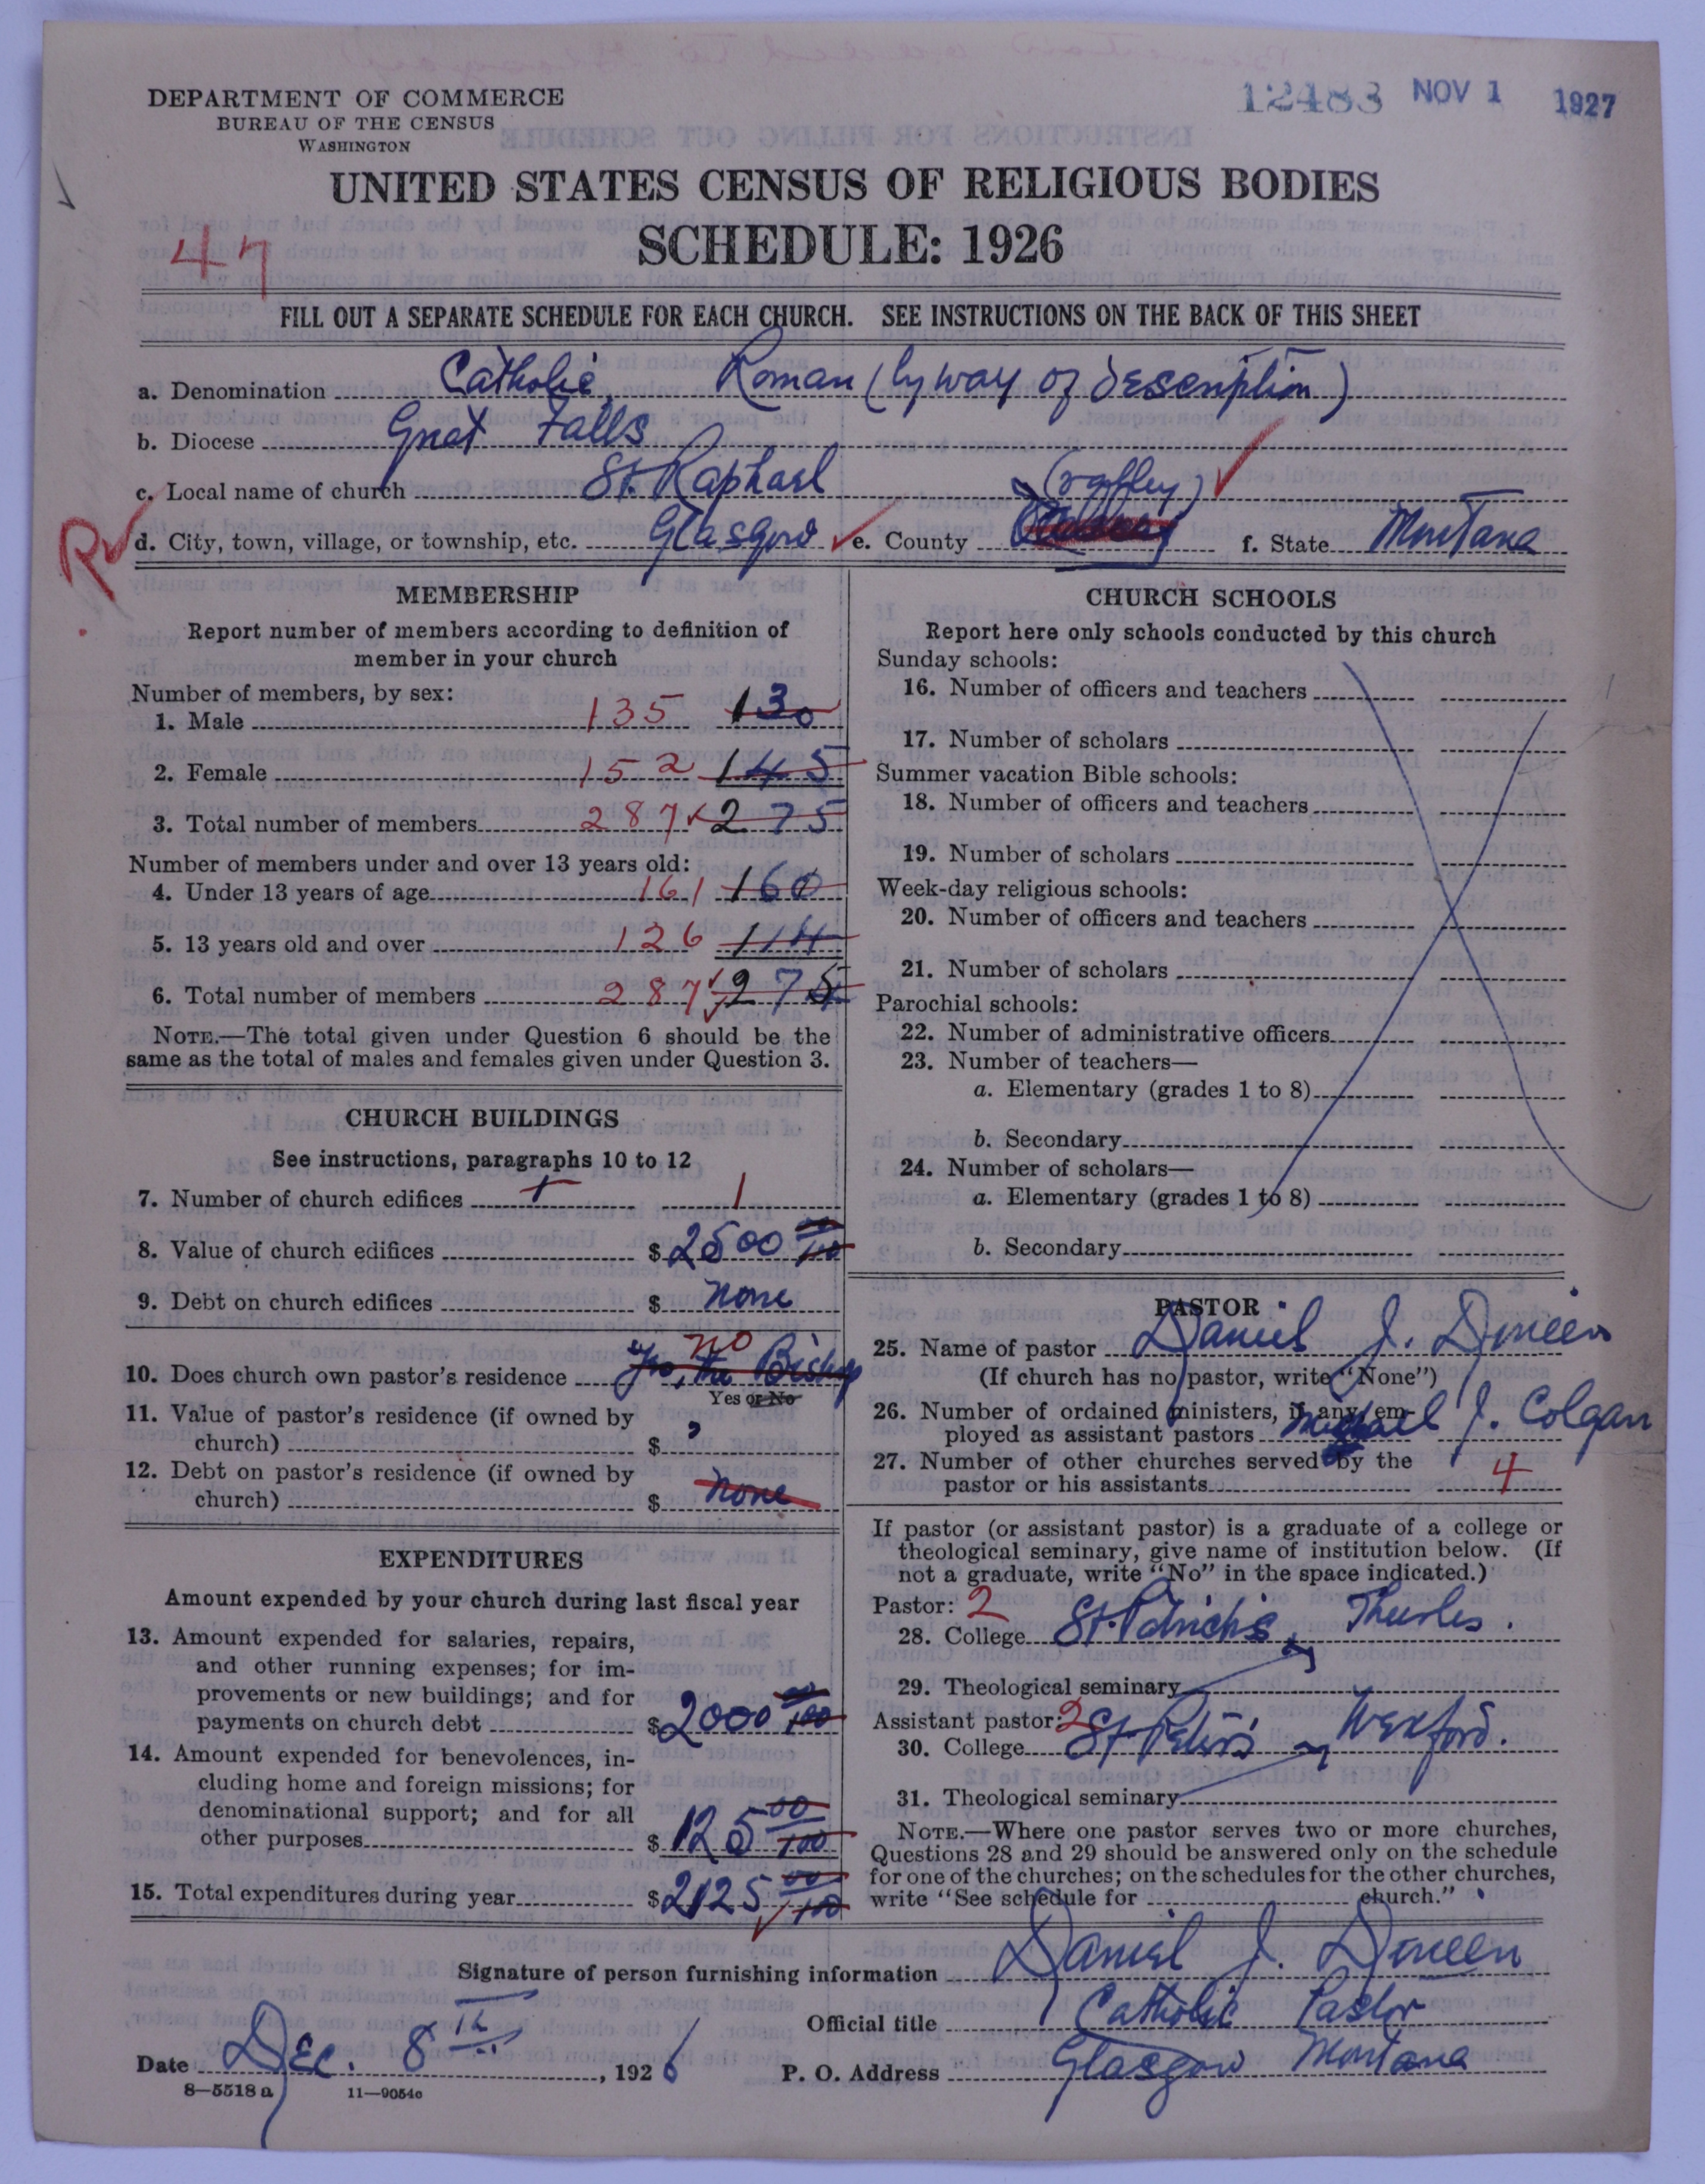 DEPARTMENT OF COMMERCE
BUREAU OF THE CENSUS
WASHINGTON
12483 NOV 1 1927
UNITED STATES CENSUS OF RELIGIOUS BODIES
SCHEDULE: 1926
47
FILL OUT A SEPARATE SCHEDULE FOR EACH CHURCH. SEE INSTRUCTIONS ON THE BACK OF THIS SHEET
a. Denomination Catholic, Roman (by way of description)
b. Diocese Great Falls
c. Local name of church St. Raphael
d. City, town, village, or township, etc. Glasgow e. County f. State Montana
MEMBERSHIP
Report number of members according to definition of
member in your church
Number of members, by sex:
1. Male 135 130
2. Female 152 145
3. Total number of members 287 275
Number of members under and over 13 years old:
4. Under 13 years of age 161 160
5. 13 years old and over 126 114
6. Total number of members 287 275
NOTE.—The total given under Question 6 should be the
same as the total of males and females given under Question 3.
CHURCH BUILDINGS
See instructions, paragraphs 10 to 12
7. Number of church edifices 1 1
8. Value of church edifices $2500 00/100
9. Debt on church edifices $ none
10. Does church own pastor's residence no the Bishop
Yes or No
11. Value of pastor's residence (if owned by
church) $
12. Debt on pastor's residence (if owned by
church) $ none
EXPENDITURES
Amount expended by your church during last fiscal year
13. Amount expended for salaries, repairs,
and other running expenses; for im-
provements or new buildings; and for
payments on church debt $2000 00/100
14. Amount expended for benevolences, in-
cluding home and foreign missions; for
denominational support; and for all
other purposes $125 00/100
15. Total expenditures during year $2125 00/100
CHURCH SCHOOLS
Report here only schools conducted by this church
Sunday schools:
16. Number of officers and teachers
17. Number of scholars
Summer vacation Bible schools:
18. Number of officers and teachers
19. Number of scholars
Week-day religious schools:
20. Number of officers and teachers
21. Number of scholars
Parochial schools:
22. Number of administrative officers
23. Number of teachers—
a. Elementary (grades 1 to 8)
b. Secondary
24. Number of scholars—
a. Elementary (grades 1 to 8)
b. Secondary
PASTOR
25. Name of pastor Daniel J. Dineen
(If church has no pastor, write "None")
26. Number of ordained ministers, if any, em-
ployed as assistant pastors Michael J. Colgan
27. Number of other churches served by the
pastor or his assistants 4
If pastor (or assistant pastor) is a graduate of a college or
theological seminary, give name of institution below. (If
not a graduate, write "No" in the space indicated.)
Pastor: 2
28. College St. Patrick's, Thurles.
29. Theological seminary "
Assistant pastor: 2
30. College St Peter's Wexford.
31. Theological seminary "
NOTE.—Where one pastor serves two or more churches,
Questions 28 and 29 should be answered only on the schedule
for one of the churches; on the schedules for the other churches,
write "See schedule for church."
Signature of person furnishing information Daniel J. Dineen
Official title Catholic Pastor
Date Dec. 8th, 1926 P. O. Address Glasgow Montana
8—5518 a 11—9054c